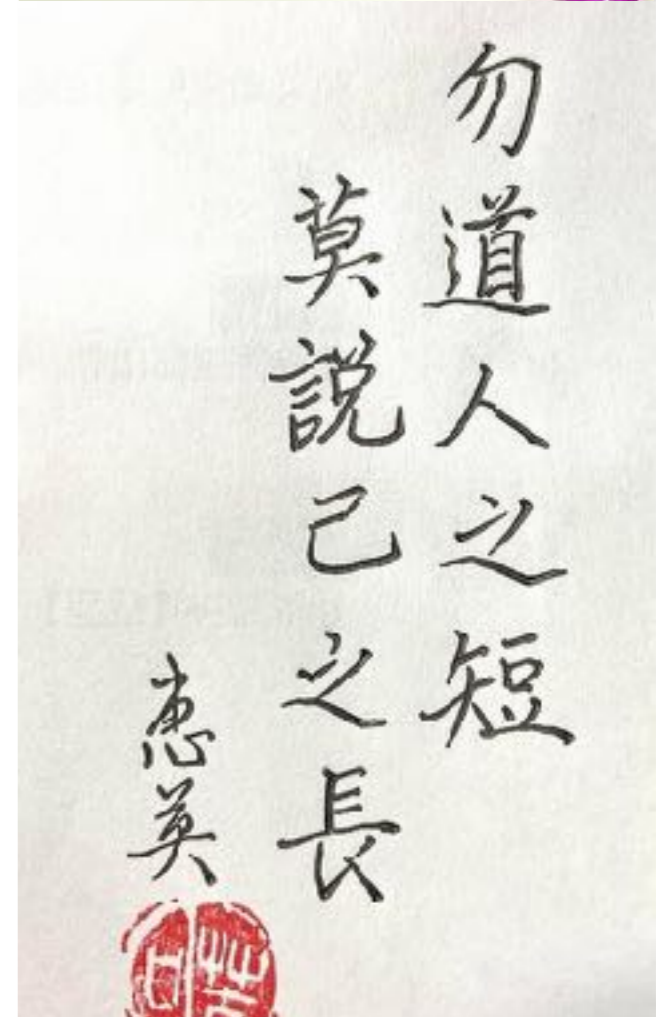 勿道人之短
莫説己之長
惠英